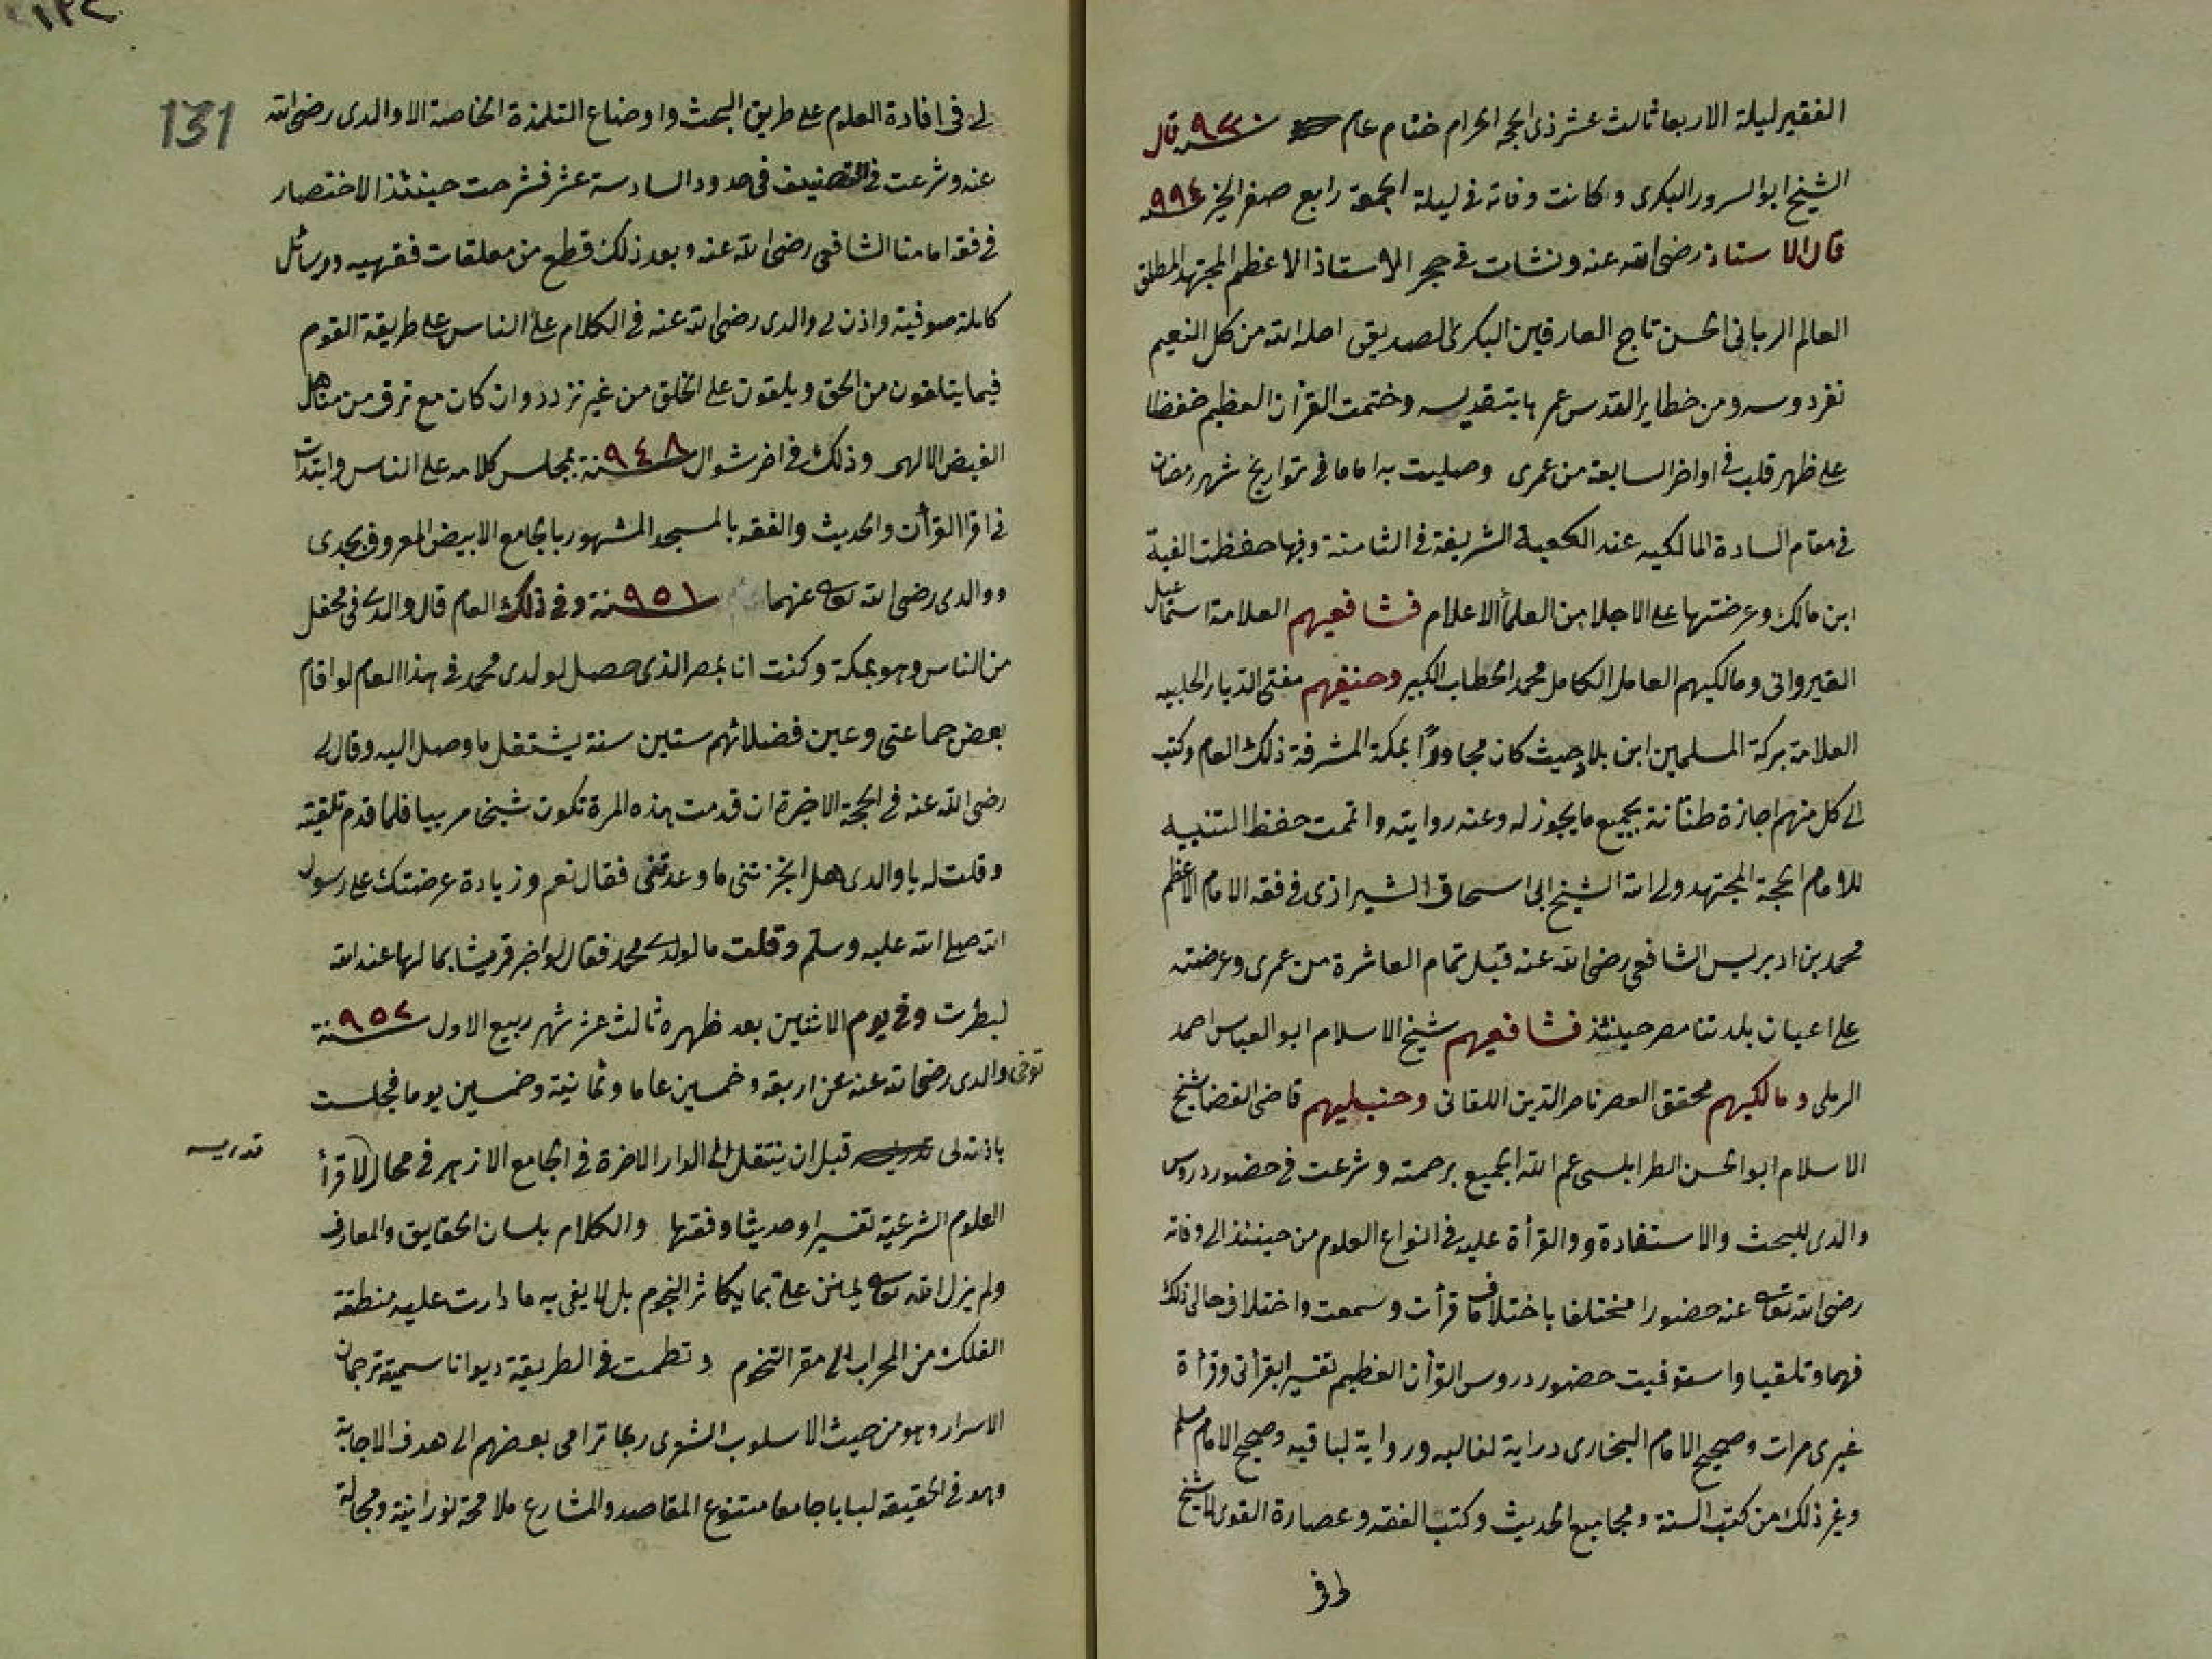 الفقير ليلة الاربعا ثالث عشر ذى الحجه الحرام ختام عام ٩٣٠ سنه قال
الشيخ ابو السرور البكرى وكانت وفاته فى ليلة الجمعة رابع صفر الخير سنه ٩٩٤
قال الاستاذ رضى الله عنه ونشات فى حجر الاستاذ الاعظم المجتهد المطلق
العالم الربانى الحسن تاج العارفين البكرى الصديقى احله الله من كل النعيم
نفردوسه ومن خطاير القدس عم بتقديسه وختمت القران العظيم حفظا
على ظهر قلب فى اواخر السابعة من عمرى وصليت به اماما فى تواريخ شهر رمضان
فى مقام السادة المالكيه عند الكعبة الشريفة فى الثامنة وفيها حفظت الفية
ابن مالك وعرضتها على الاجلا من العلمأ الاعلام فشافعيهم العلامة اسماعيل
القيروانى ومالكيهم العامل الكامل محمد الحطاب الكبير وحنفيهم مفتى الديار الحلبيه
العلامة بركة المسلمين ابن بلال حيث كان مجاورًا بمكة المشرفة ذلك العام وكتب
لى كل منهم اجازة طنّانة بجميع ما يجوز له وعنه روايته واتممت حفظ التنبيه
للامام الحجة المجتهد ولى الله الشيخ ابى اسحاق الشيرازى فى فقه الامام الاعظم
محمد بن ادريس الشافعى رضى الله عنه قبل تمام العاشرة من عمرى وعرضته
على اعيان بلدتنا مصر حينئذ فشافعيهم شيخ الاسلام ابو العباس احمد
الرملى ومالكيهم محقق العصر ناصر الدين اللقانى وحنبليهم قاضى القضا شيخ
الاسلام ابو الحسن الطرابلسى عم الله الجميع برحمته وشرعت فى حضور دروس
والدى للبحث والاستفادة و والقرأة عليه فى انواع العلوم من حينئذ الى وفاته
رضى الله تعالى عنه حضورا مختلفا باختلاف ما قرأت وسمعت واختلاف حالى ذلك
فهما وتلقيا واستوفيت حضور دروس القرأن العظيم تفسير ابقرأتى وقرأة
غيرى مرات وصحيح الامام البخارى دراية لغالبه ورواية لباقيه وصحيح الامام مسلم
وغير ذلك من كتب السنة ومجاميع الحديث وكتب الفقه وعصارة القول لا شيخ
لى فى
131
لى فى افادة العلوم على طريق البحث واوضاع التلمذة الخاصة الا والدى رضى الله
عنه وشرعت فى التصنيف فى حدود السادسة عشر فشرحت حينئذ الاختصار
فى فقه امامنا الشافعى رضى الله عنه وبعد ذلك قطع من معلقات فقهيه ورسائل
كاملة صوفية واذن لى والدى رضى الله عنه فى الكلام على الناس على طريقة القوم
فيما يتلقون من الحق ويلقون على الخلق من غير تردد وان كان مع ترق من مناهل
الفيض الالهى وذلك فى اخر شوال سنة ٩٤٨ بمجلس كلامه على الناس وابتدات
فى اقرا القرأن والحديث والفقه بالمسجد المشهور بالجامع الابيض المعروف بجدى
ووالدى رضى الله تعالى عنهما سنة ٩٥١ وفى ذلك العام قال والدى فى محفل
من الناس وهو بمكة وكنت انا بمصر الذى حصل لولدى محمد فى هذا العام لو اقام
بعض جماعتى وعين فضلائهم ستين سنة يشتغل ما وصل اليه وقال لى
رضى الله عنه فى الحجة الاخيرة ان قدمت هذه المرة تكون شيخا مربيا فلما قدم تلقيته
وقلت له يا والدى هل انجزتنى ما وعدتنى فقال نعم وزيادة عرضتك على رسول
الله صلى الله عليه وسلم وقلت ما لولدى محمد فقال لو اخبر قريشا بما لها عند الله
لبطرت وفى يوم الاثنين بعد ظهره ثالث عشر شهر ربيع الاول سنة ٩٥٢
توفى والدى رضى الله عنه عن اربعة وخمسين عاما وثمانية وخمسين يوما فجلست
باذنه لى قبل ان ينتقل الى الدار الاخرة فى الجامع الازهر فى محال الاقرأ
تدريسه
العلوم الشرعية تفسيرا وحديثا وفقها والكلام بلسان الحقايق والمعارف
ولم يزل الله تعالى يمنن على بما يكاثر النجوم بل لا يفى به ما دارت عليه منطقة
الفلك من المحراب الى مقر التخوم ونظمت فى الطريقة ديوانا سميته ترجمان
الاسرار وهو من حيث الاسلوب الشعرى ربما ترامى بعضهم الى هدف الاجابة
وهو فى الحقيقه لبابا جامعا متنوع المقاصد والمشارع ملا محة نورانية ومجالة